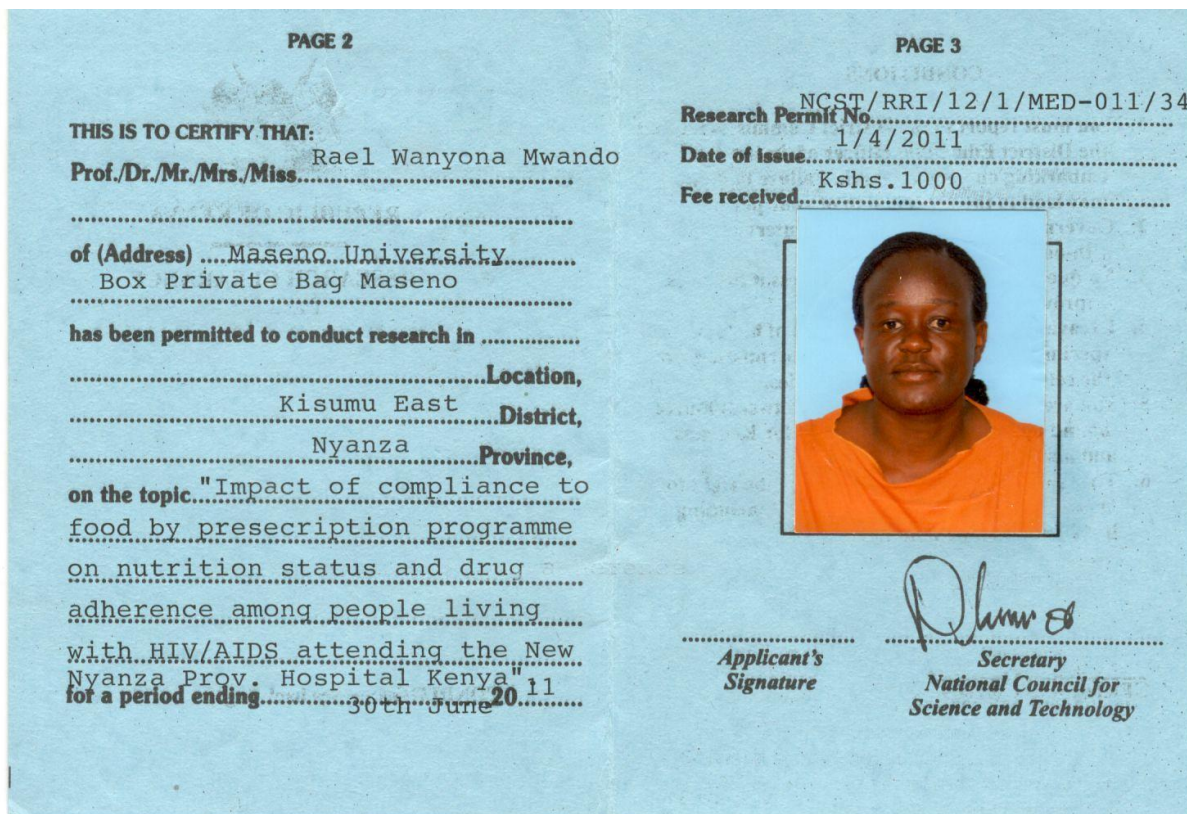 PAGE 2
THIS IS TO CERTIFY THAT:
Prof./Dr./Mr./Mrs./Miss Rael Wanyona Mwando
of (Address) Maseno University
Box Private Bag Maseno
has been permitted to conduct research in
Location,
Kisumu East District,
Nyanza Province,
on the topic "Impact of compliance to
food by presecription programme
on nutrition status and drug
adherence among people living
with HIV/AIDS attending the New
Nyanza Prov. Hospital Kenya".
for a period ending 30th June 20 11
PAGE 3
Research Permit No. NCST/RRI/12/1/MED-011/34
Date of issue 1/4/2011
Fee received Kshs.1000
Applicant's
Signature
Secretary
National Council for
Science and Technology